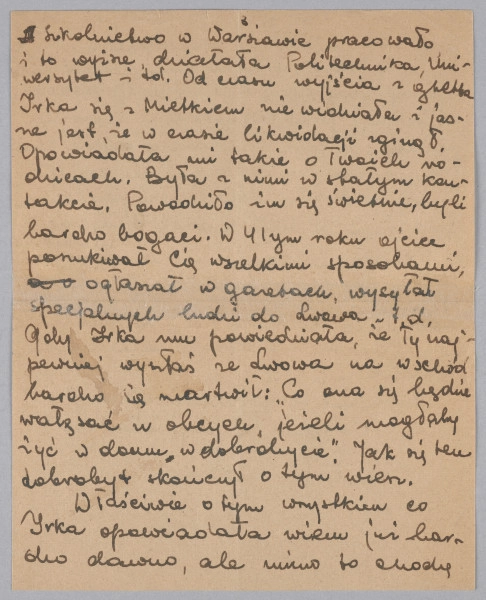 3
Szkolnictwo w Warszawie pracowało
i to wyższe, działała Politechnika, Uni-
wersytet i td. Od czasu wyjścia z ghetta
Irka się z Mietkiem nie widziała i jas-
ne jest, że w czasie likwidacji zginął.
Opowiadała mi także o Twoich ro-
dzicach. Była z nimi w stałym kon-
takcie. Powodziło im się świetnie, byli
bardzo bogaci. W 41 ym roku ojciec
poszukiwał Cię wszelkimi sposobami,
ogłaszał w gazetach, wysyłał
specjalnych ludzi do Lwowa i t.d.
Gdy Irka mu powiedziała, że Ty naj-
pewniej wyszłaś ze Lwowa na wschód
bardzo się martwił: "Co ona się będzie
wałęsać w obcych, jeżeli mogłaby
żyć w domu, w dobrobycie". Jak się ten
dobrobyt skończył o tym wiesz.
Właściwie o tym wszystkiem co
Irka opowiadała wiem już bar-
dzo dawno, ale mimo to chodzę